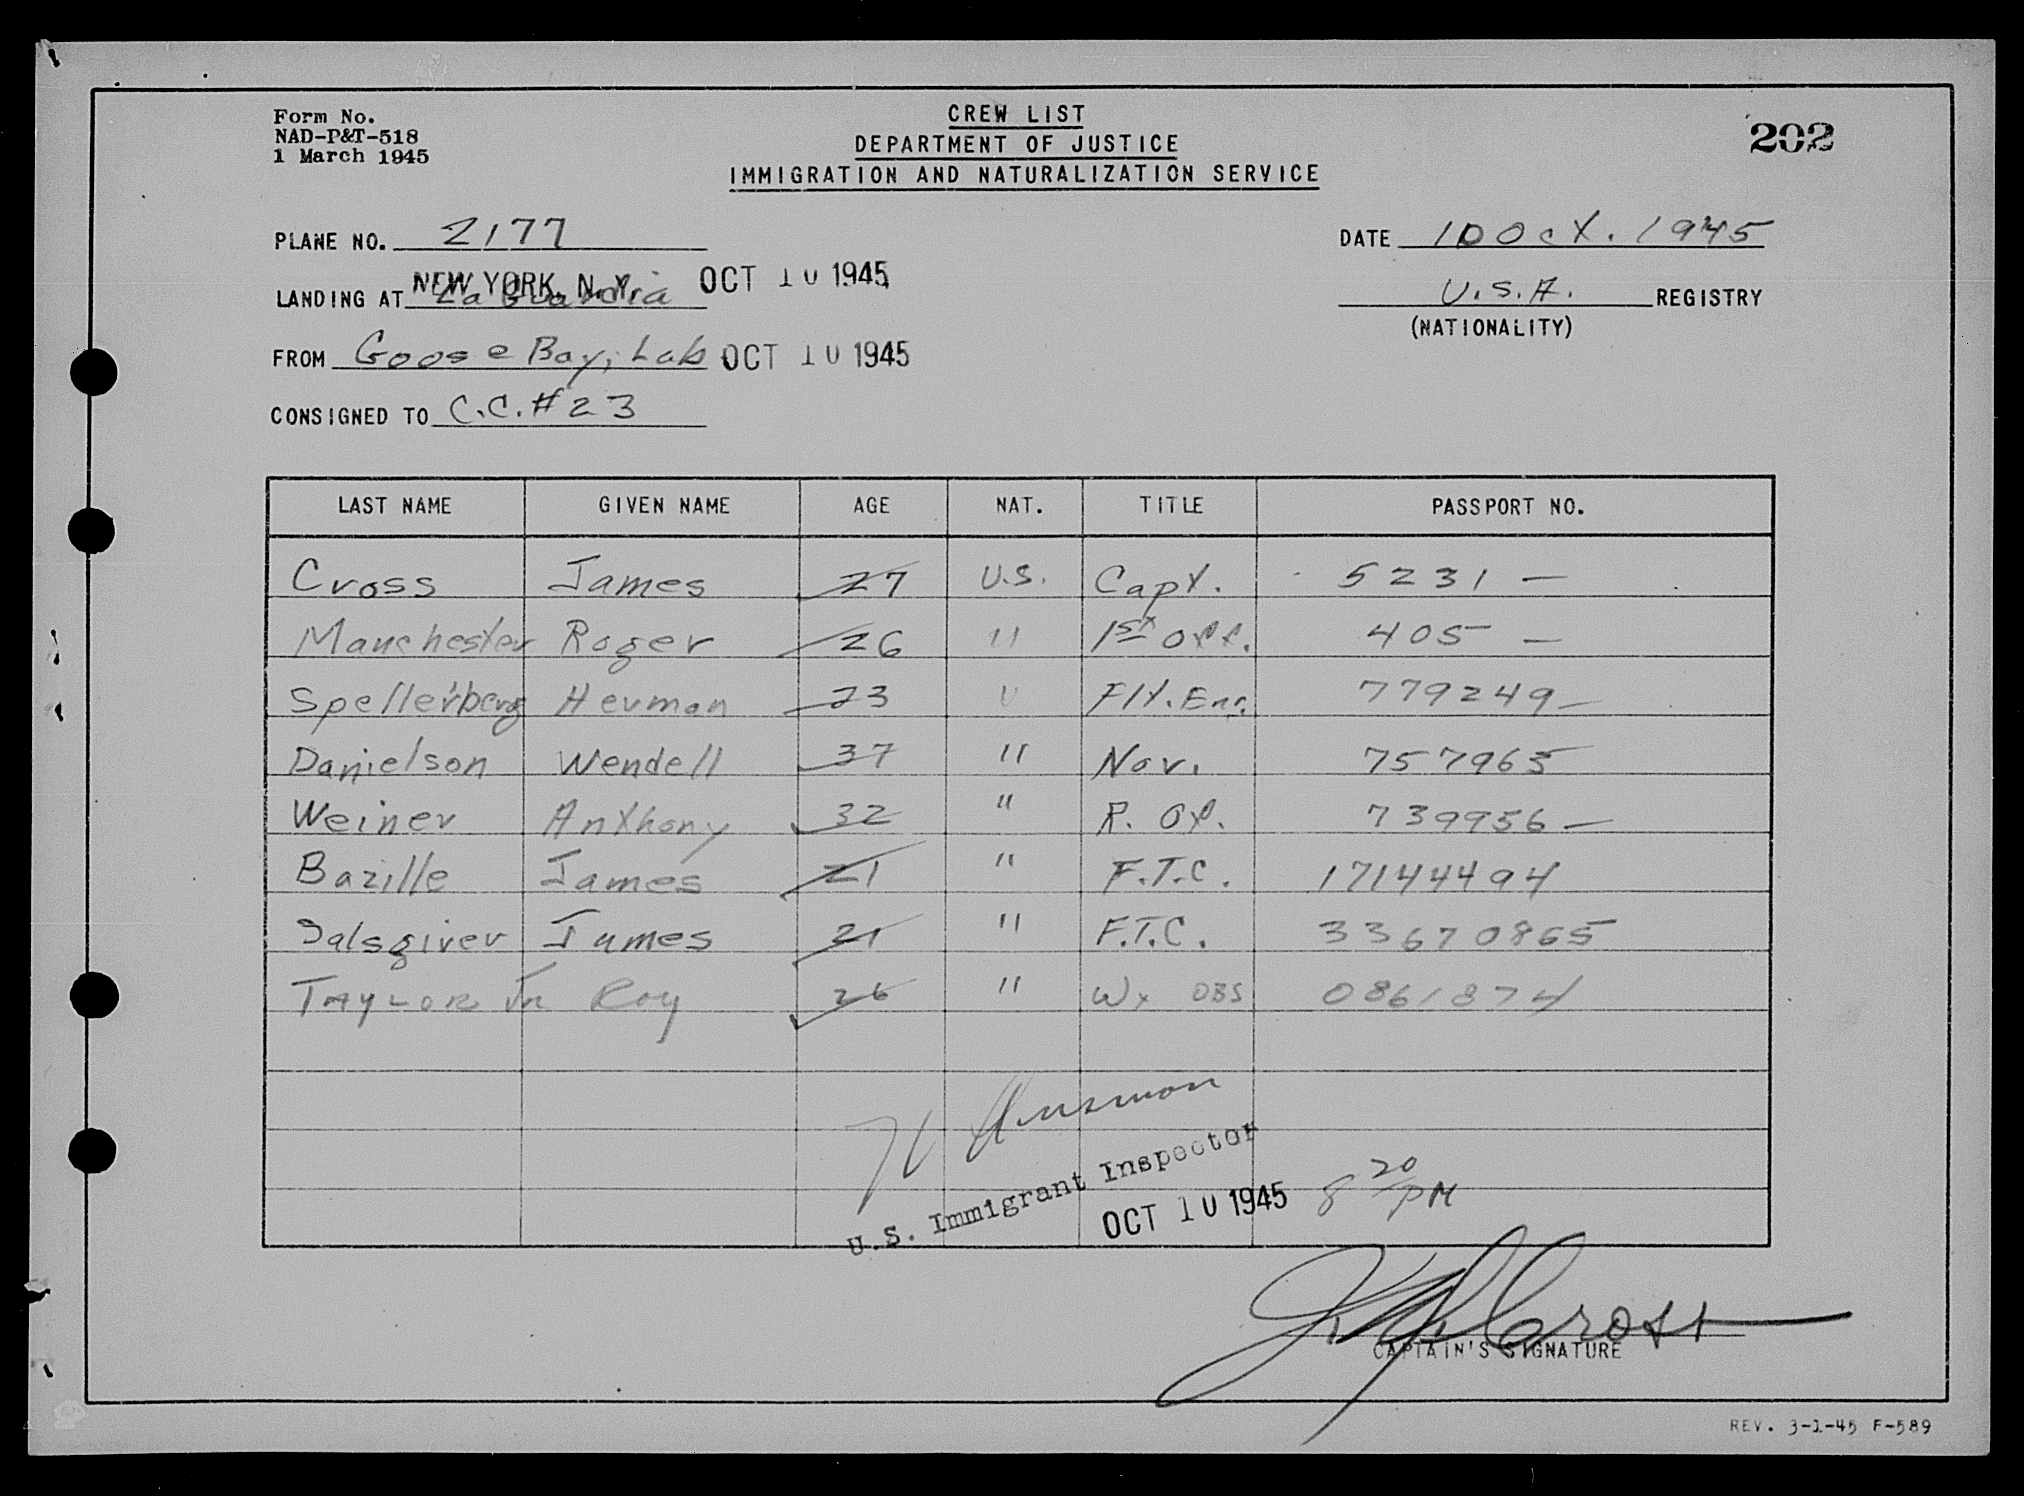 Form No.
NAD-P&T-518
1 March 1945
CREW LIST
DEPARTMENT OF JUSTICE
IMMIGRATION AND NATURALIZATION SERVICE
202
PLANE NO. 2177
DATE 10 Oct. 1945
LANDING AT La Guardia NEW YORK, N.Y. OCT 10 1945
U.S.A. REGISTRY
(NATIONALITY)
FROM Goose Bay, Lab OCT 10 1945
CONSIGNED TO C.C.#23
LAST NAME GIVEN NAME AGE NAT. TITLE PASSPORT NO.
Cross James 27 U.S. Capt. 5231 —
Manchester Roger 26 " 1st Off. 405 —
Spellerberg Herman 23 " Flt. Eng. 779249 —
Danielson Wendell 37 " Nav. 757965
Weiner Anthony 32 " R. Op. 739956 —
Bazille James 21 " F.T.C. 17144494
Salsgiver James 21 " F.T.C. 33670865
TAYLOR Jr Roy 26 " Wx OBS 0861874
U.S. Immigrant Inspector
OCT 10 1945 8 20 PM
Cross
CAPTAIN'S SIGNATURE
REV. 3-1-45 F-589